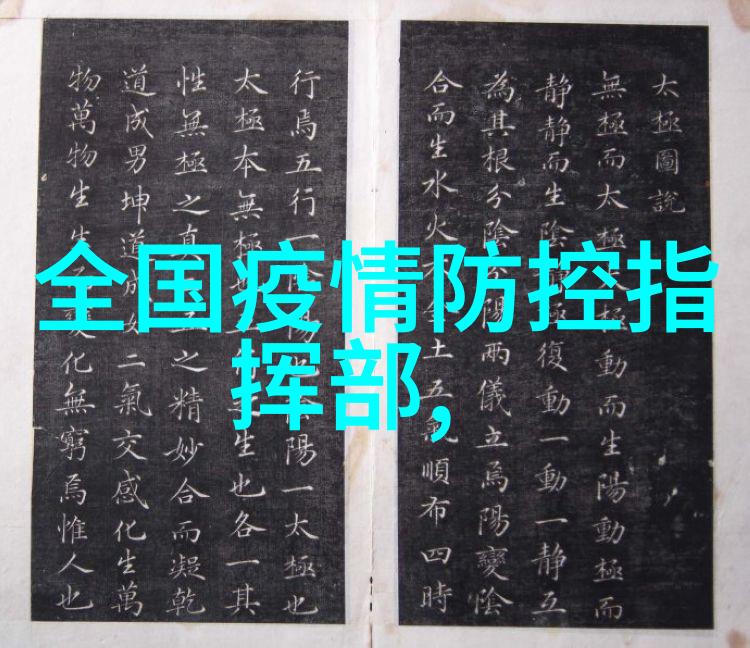 太極圖說
無極而太極太極動而生陽動極而
静静而生陰静極復動一動一静互
為其根分陰分陽兩儀立焉陽變陰
合而生水火木金土五氣順布四時
行焉五行一陰陽也陰陽一太極也
太極本無極也生也各一其
性無極之真五之精妙合而凝乾
道成男坤道成女二氣交感化生萬
物萬物生生而變化無窮焉惟人也
全国疫情防控指
挥部,